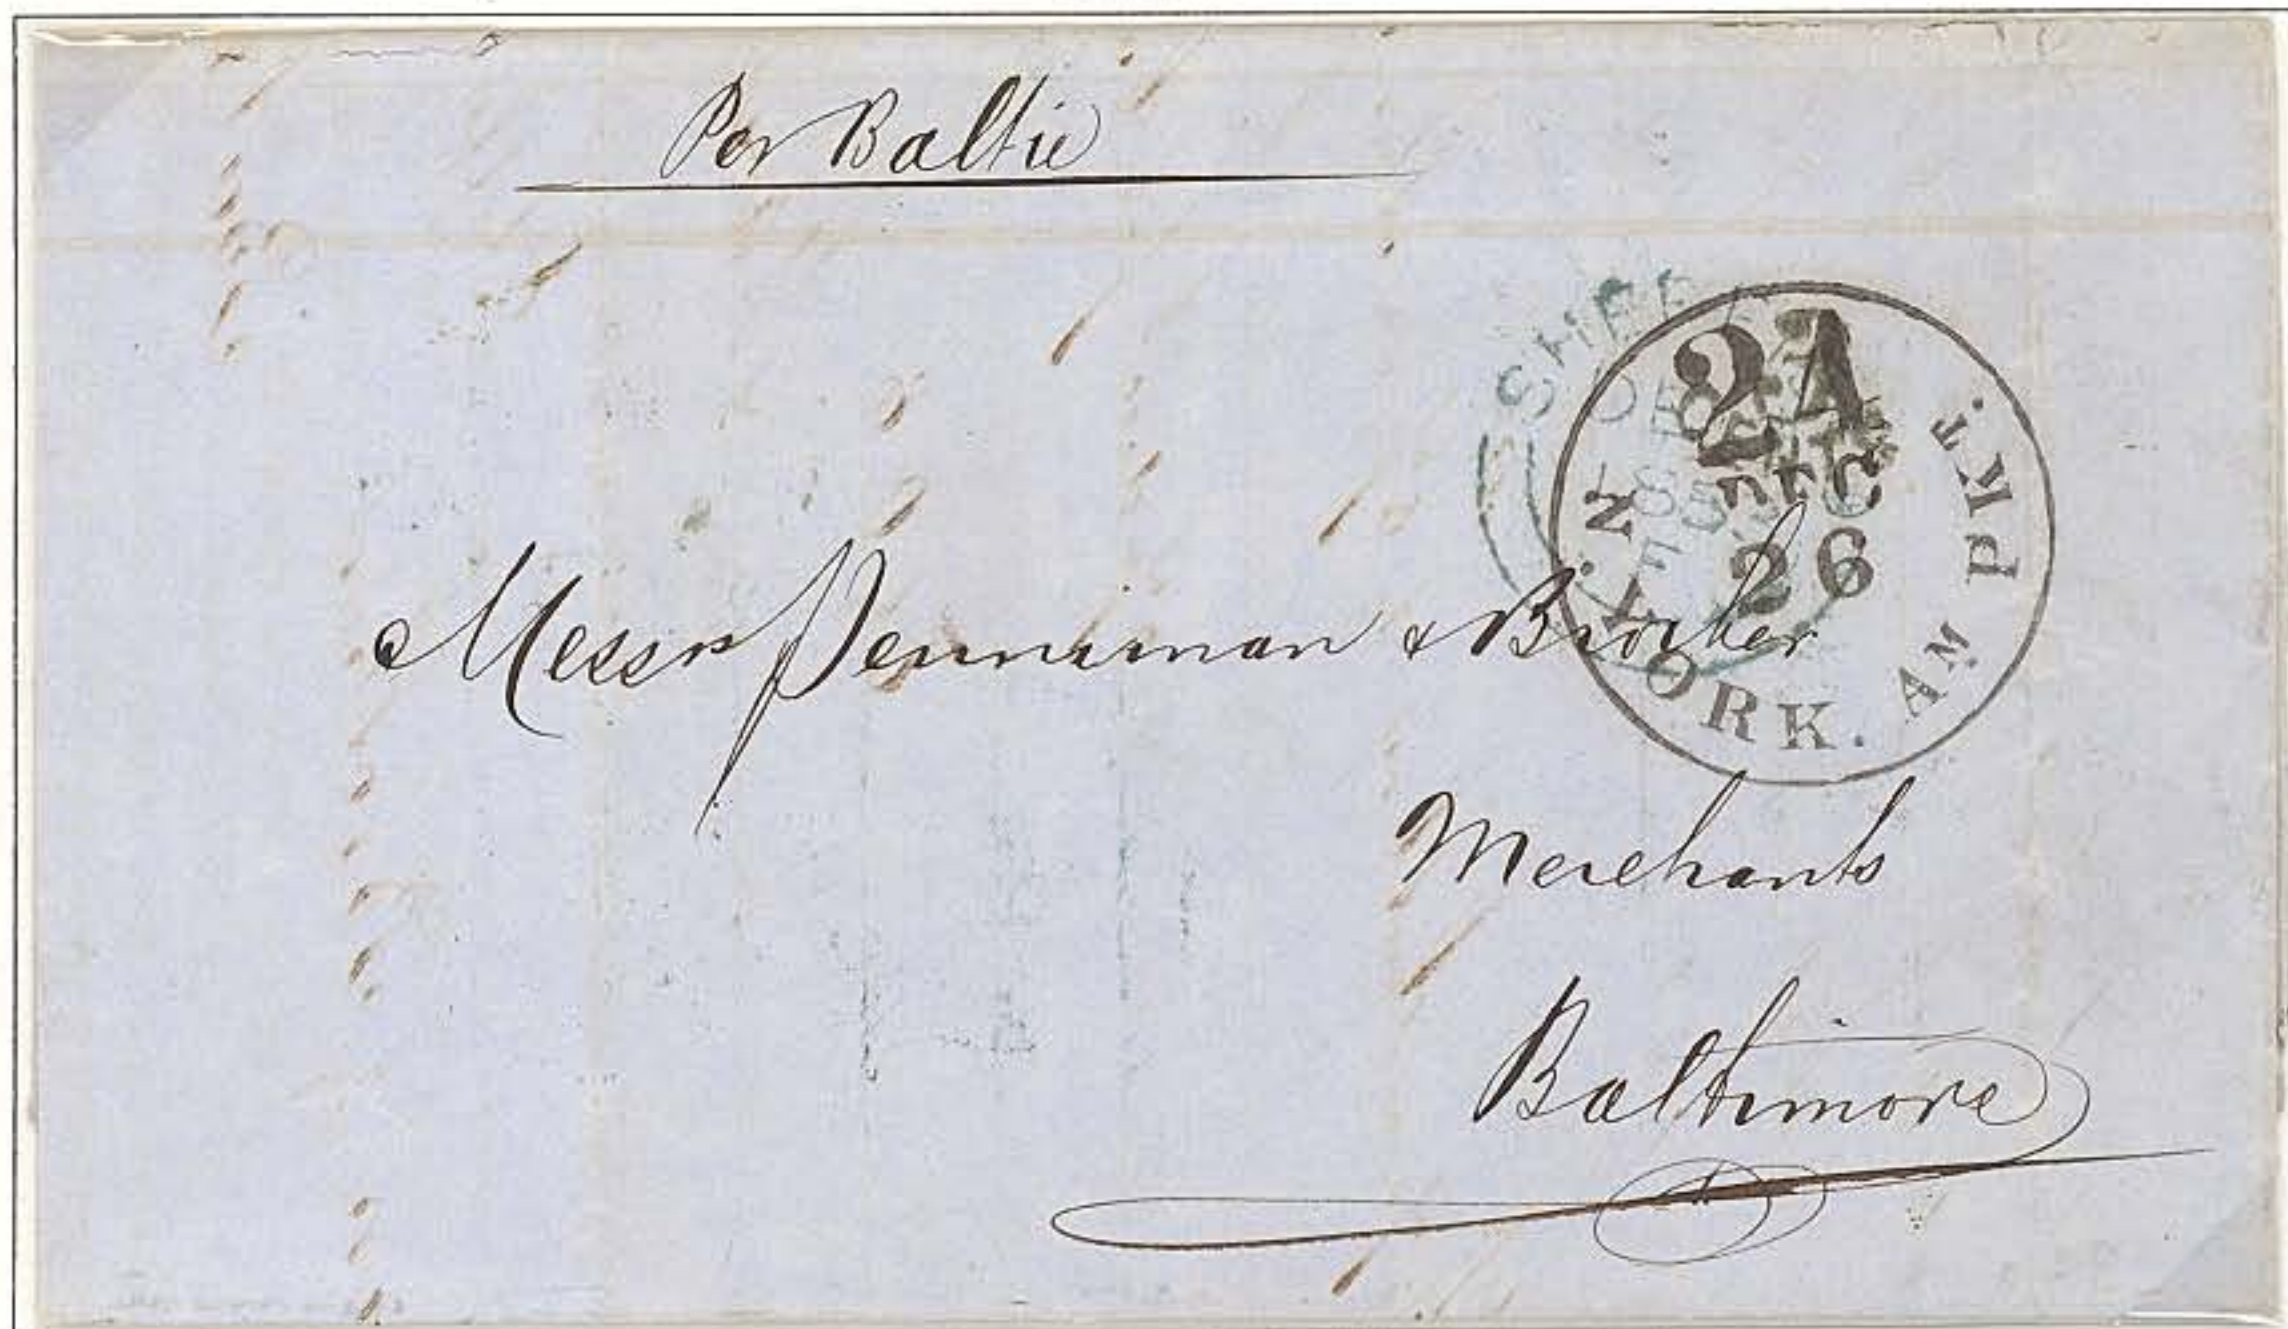 Per Baltic
24
DEC
26
N. YORK. AM PKT.
Messrs Penniman & Brother
Merchants
Baltimore